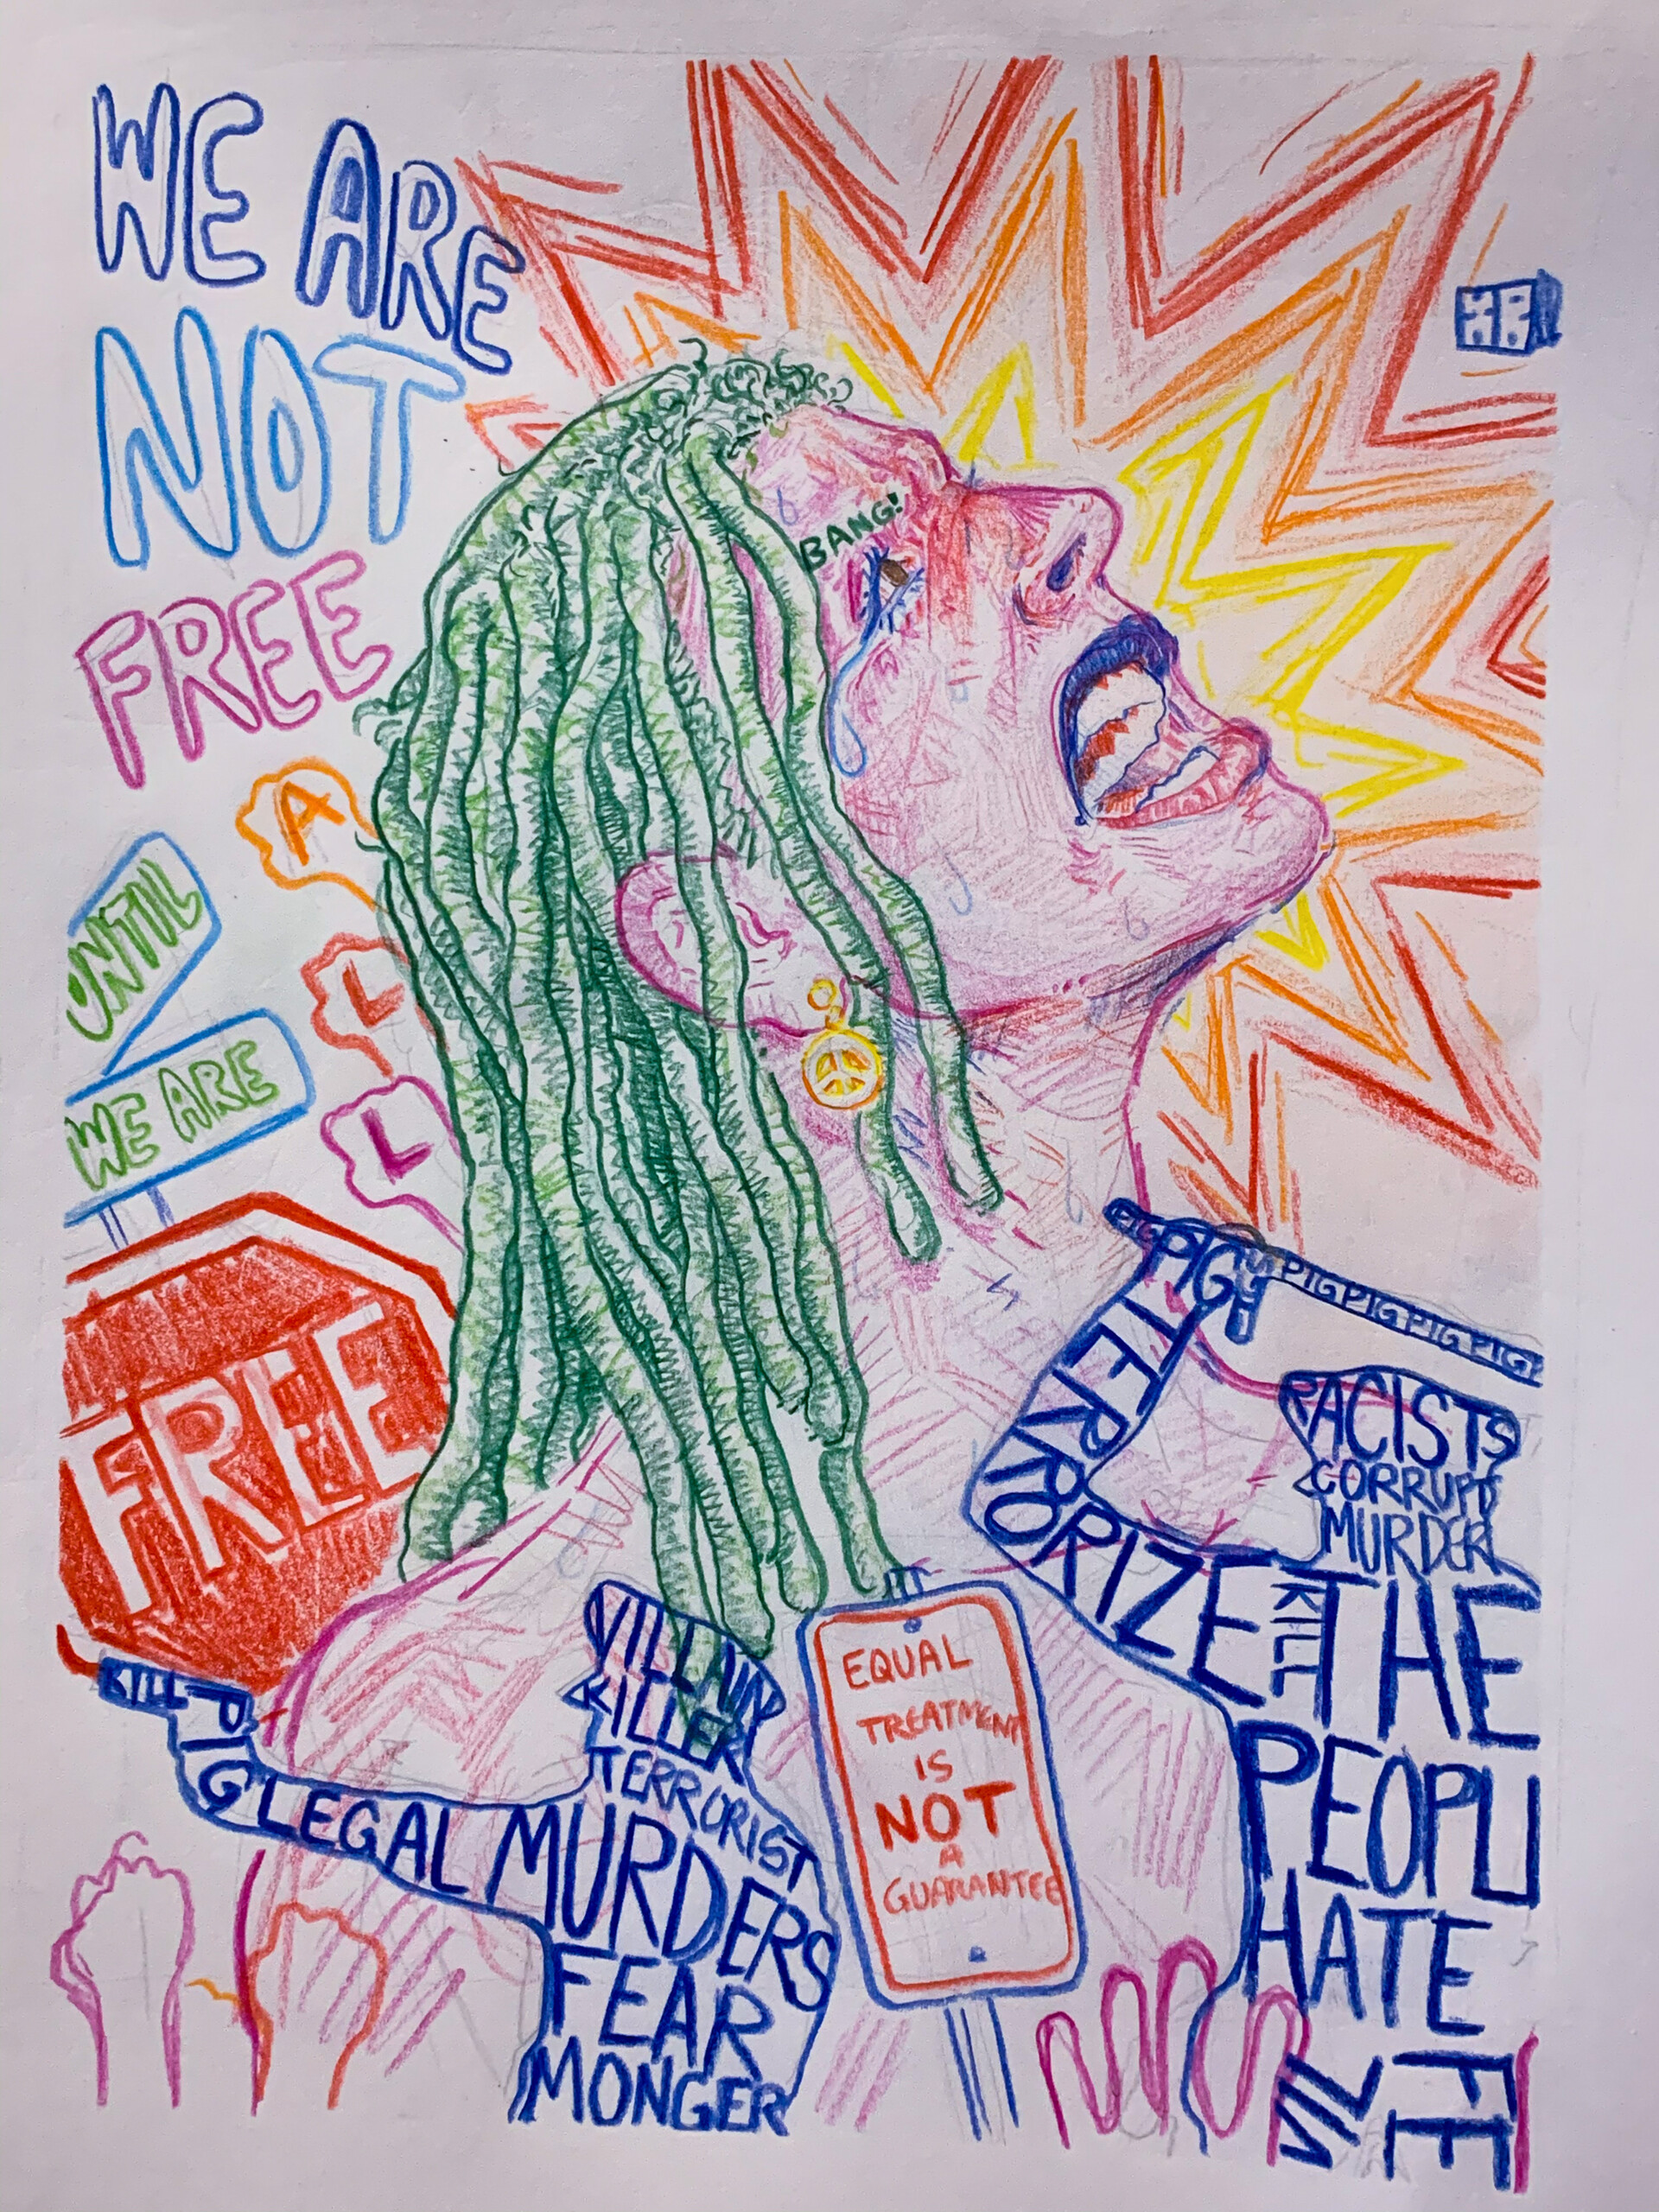 WE ARE
NOT
FREE
UNTIL
WE ARE
A
L
L
FREE
BANG!
PIG PIG PIG PIG PIG
PIG
TERRORIZE
THE
PEOPL
HATE
RACISTS
CORRUPT
MURDER
KILL
KILL
PIG LEGAL MURDERS
FEAR
MONGER
VILLAIN
KILLER
TERRORIST
EQUAL
TREATMENT
IS
NOT
A
GUARANTEE